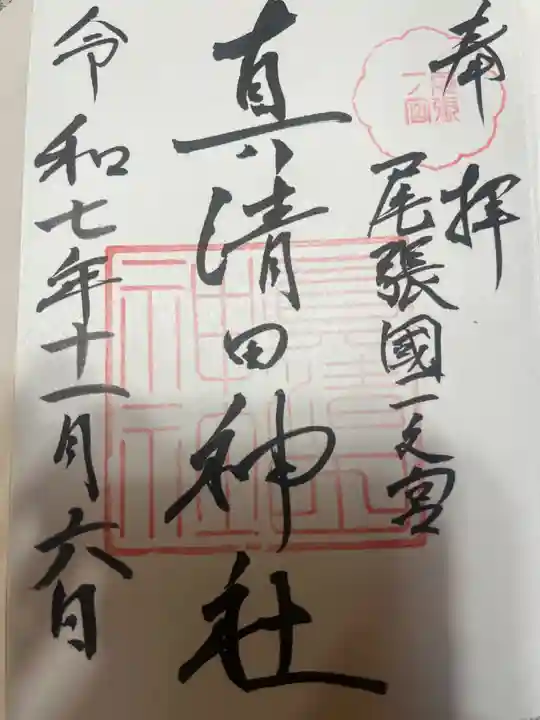 奉拝
尾張國一之宮
真清田神社
令和七年十一月六日
尾張
一宮
真清田
神社